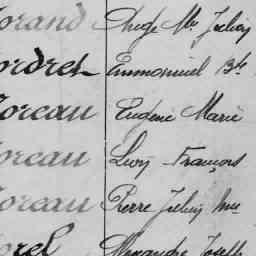 orand Ange Me Julien
ordret Emmanuel Bte
oreau Eugène Marie
oreau Léon François
oreau Pierre Julien Me
orel Alexandre Joseph